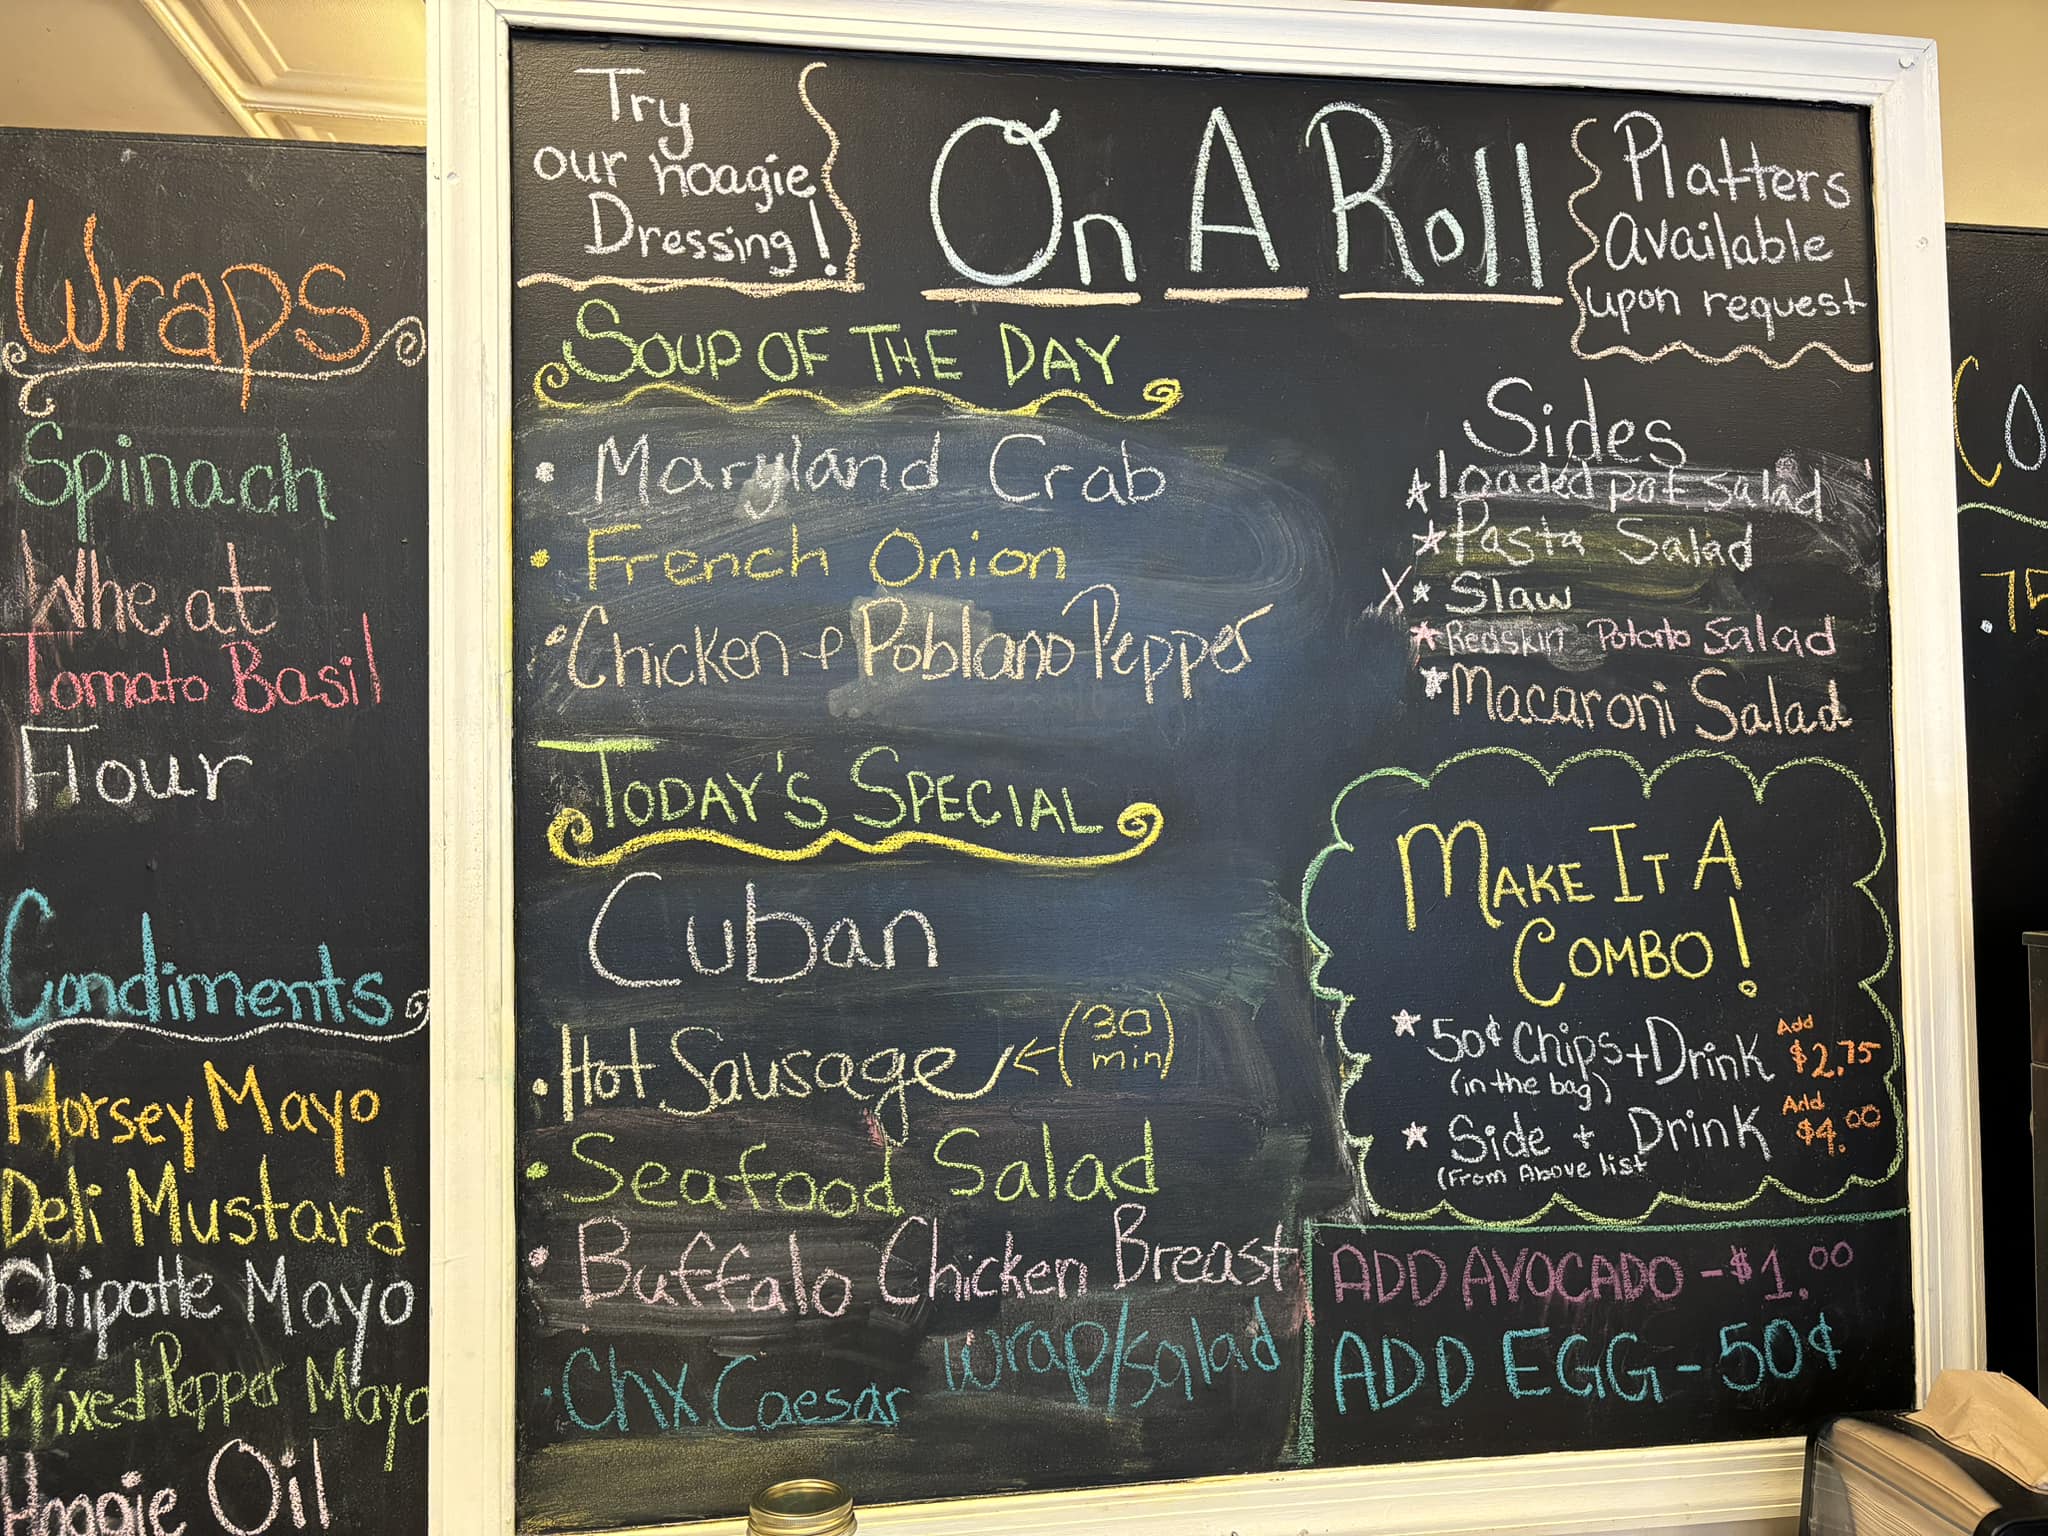 Wraps
Spinach
Wheat
Tomato Basil
Flour
Condiments
Horsey Mayo
Deli Mustard
Chipotle Mayo
Mixed Pepper Mayo
Hoagie Oil
Try
our hoagie
Dressing!
On A Roll
Platters
Available
upon request
SOUP OF THE DAY
• Maryland Crab
• French Onion
• Chicken + Poblano Pepper
TODAY'S SPECIAL
Cuban
• Hot Sausage ← (30 min)
• Seafood Salad
• Buffalo Chicken Breast
• Chx Caesar wrap/salad
Sides
* loaded pot salad
* Pasta Salad
X * Slaw
* Redskin Potato Salad
* Macaroni Salad
MAKE IT A
COMBO!
* 50¢ Chips + Drink Add $2.75
(in the bag)
* Side + Drink Add $4.00
(From Above list
ADD AVOCADO - $1.00
ADD EGG - 50¢